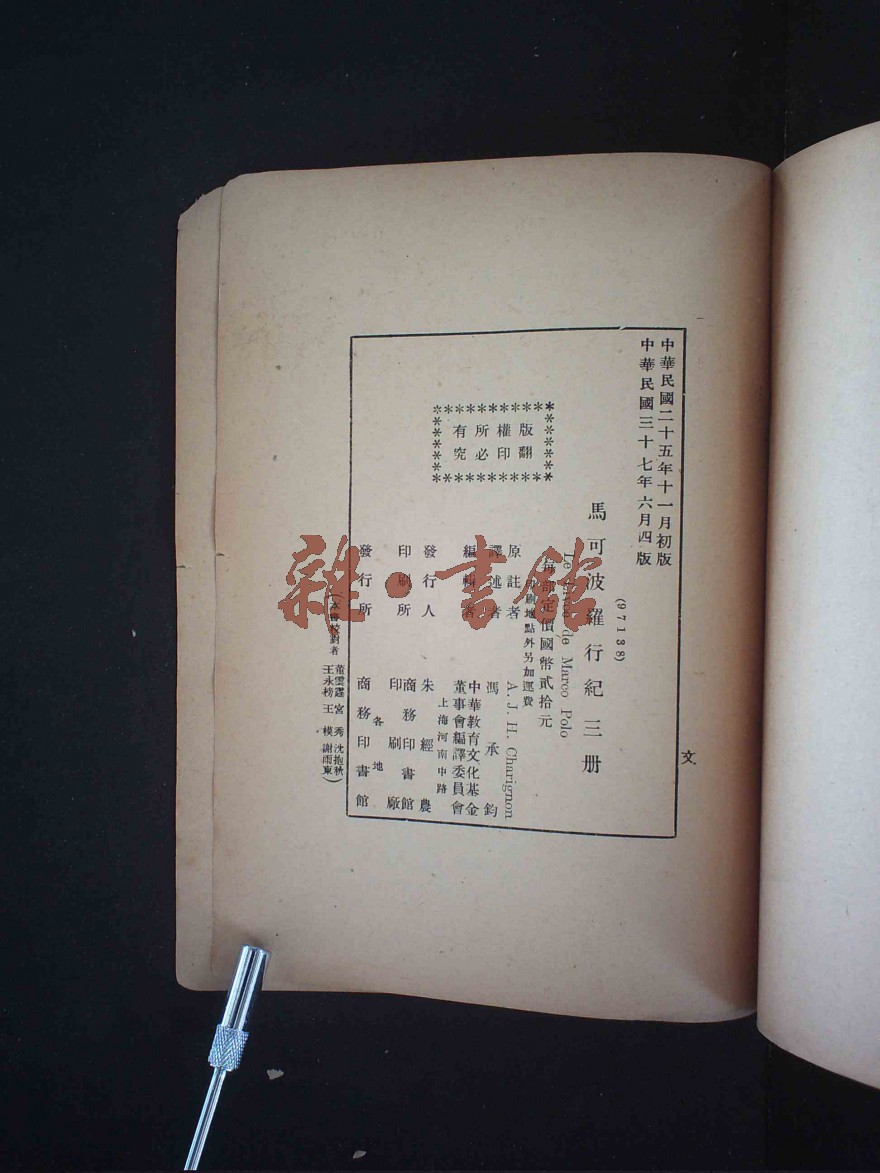 中華民國二十五年十一月初版
中華民國三十七年六月四版
(97138)
馬可波羅行紀三册
Le Livre de Marco Polo
每部定價國幣貳拾元
印刷地點外另加運費
版權所有
翻印必究
原註者 A. J. H. Charignon
譯述者 馮承鈞
編輯者 中華教育文化基金
董事會編譯委員會
上海河南中路
發行人 朱經農
印刷所 商務印書館
印刷廠
各地
發行所 商務印書館
(本書校對者 董雲霆 宮秀 沈抱秋
王永榜 王模 謝雨東)
文
雜·書館